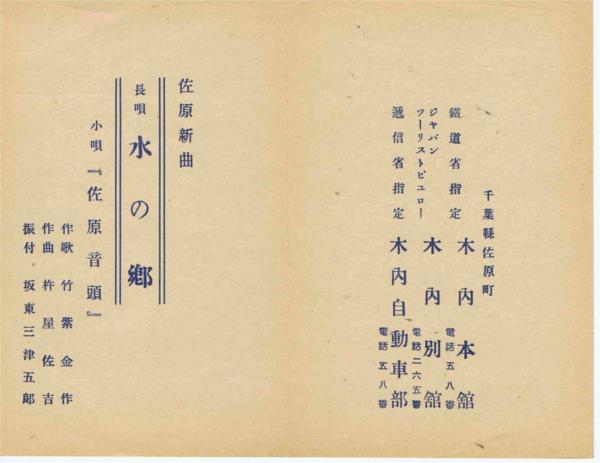 千葉縣佐原町
鐵道省指定 木內本舘 電話五八番
ジャパンツーリストビュロー 木內別舘 電話二六五番
遞信省指定 木內自動車部 電話五八番
佐原新曲
長唄 水の鄉
小唄『佐原音頭』
作歌 竹紫金作
作曲 杵屋佐吉
振付 坂東三津五郎